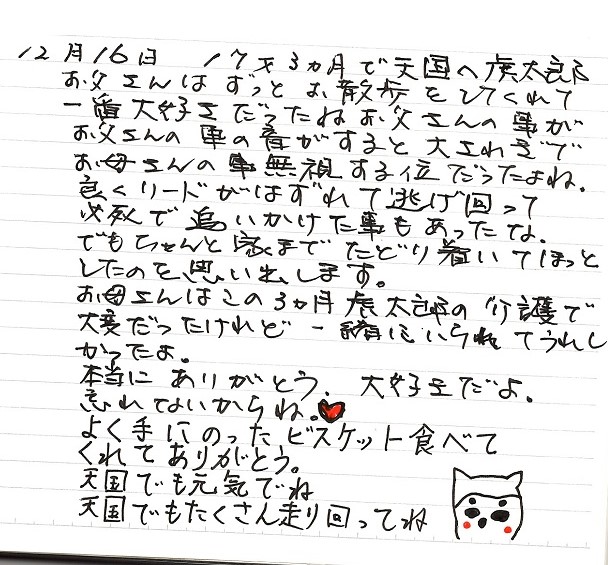 12月16日 17才3ヵ月で天国へ虎太郎
お父さんはずっとお散歩をしてくれて
一番大好きだったねお父さんの事が
お父さんの車の音がすると大さわぎで
お母さんの事無視する位だったよね。
良くリードがはずれて逃げ回って
必死で追いかけた事もあったな。
でもちゃんと家までたどり着いてほっと
したのを思い出します。
お母さんはこの3ヵ月虎太郎の介護で
大変だったけれど一緒にいられてうれし
かったよ。
本当にありがとう。大好きだよ。
忘れてないからね。
よく手にのったビスケット食べて
くれてありがとう。
天国でも元気でね
天国でもたくさん走り回ってね